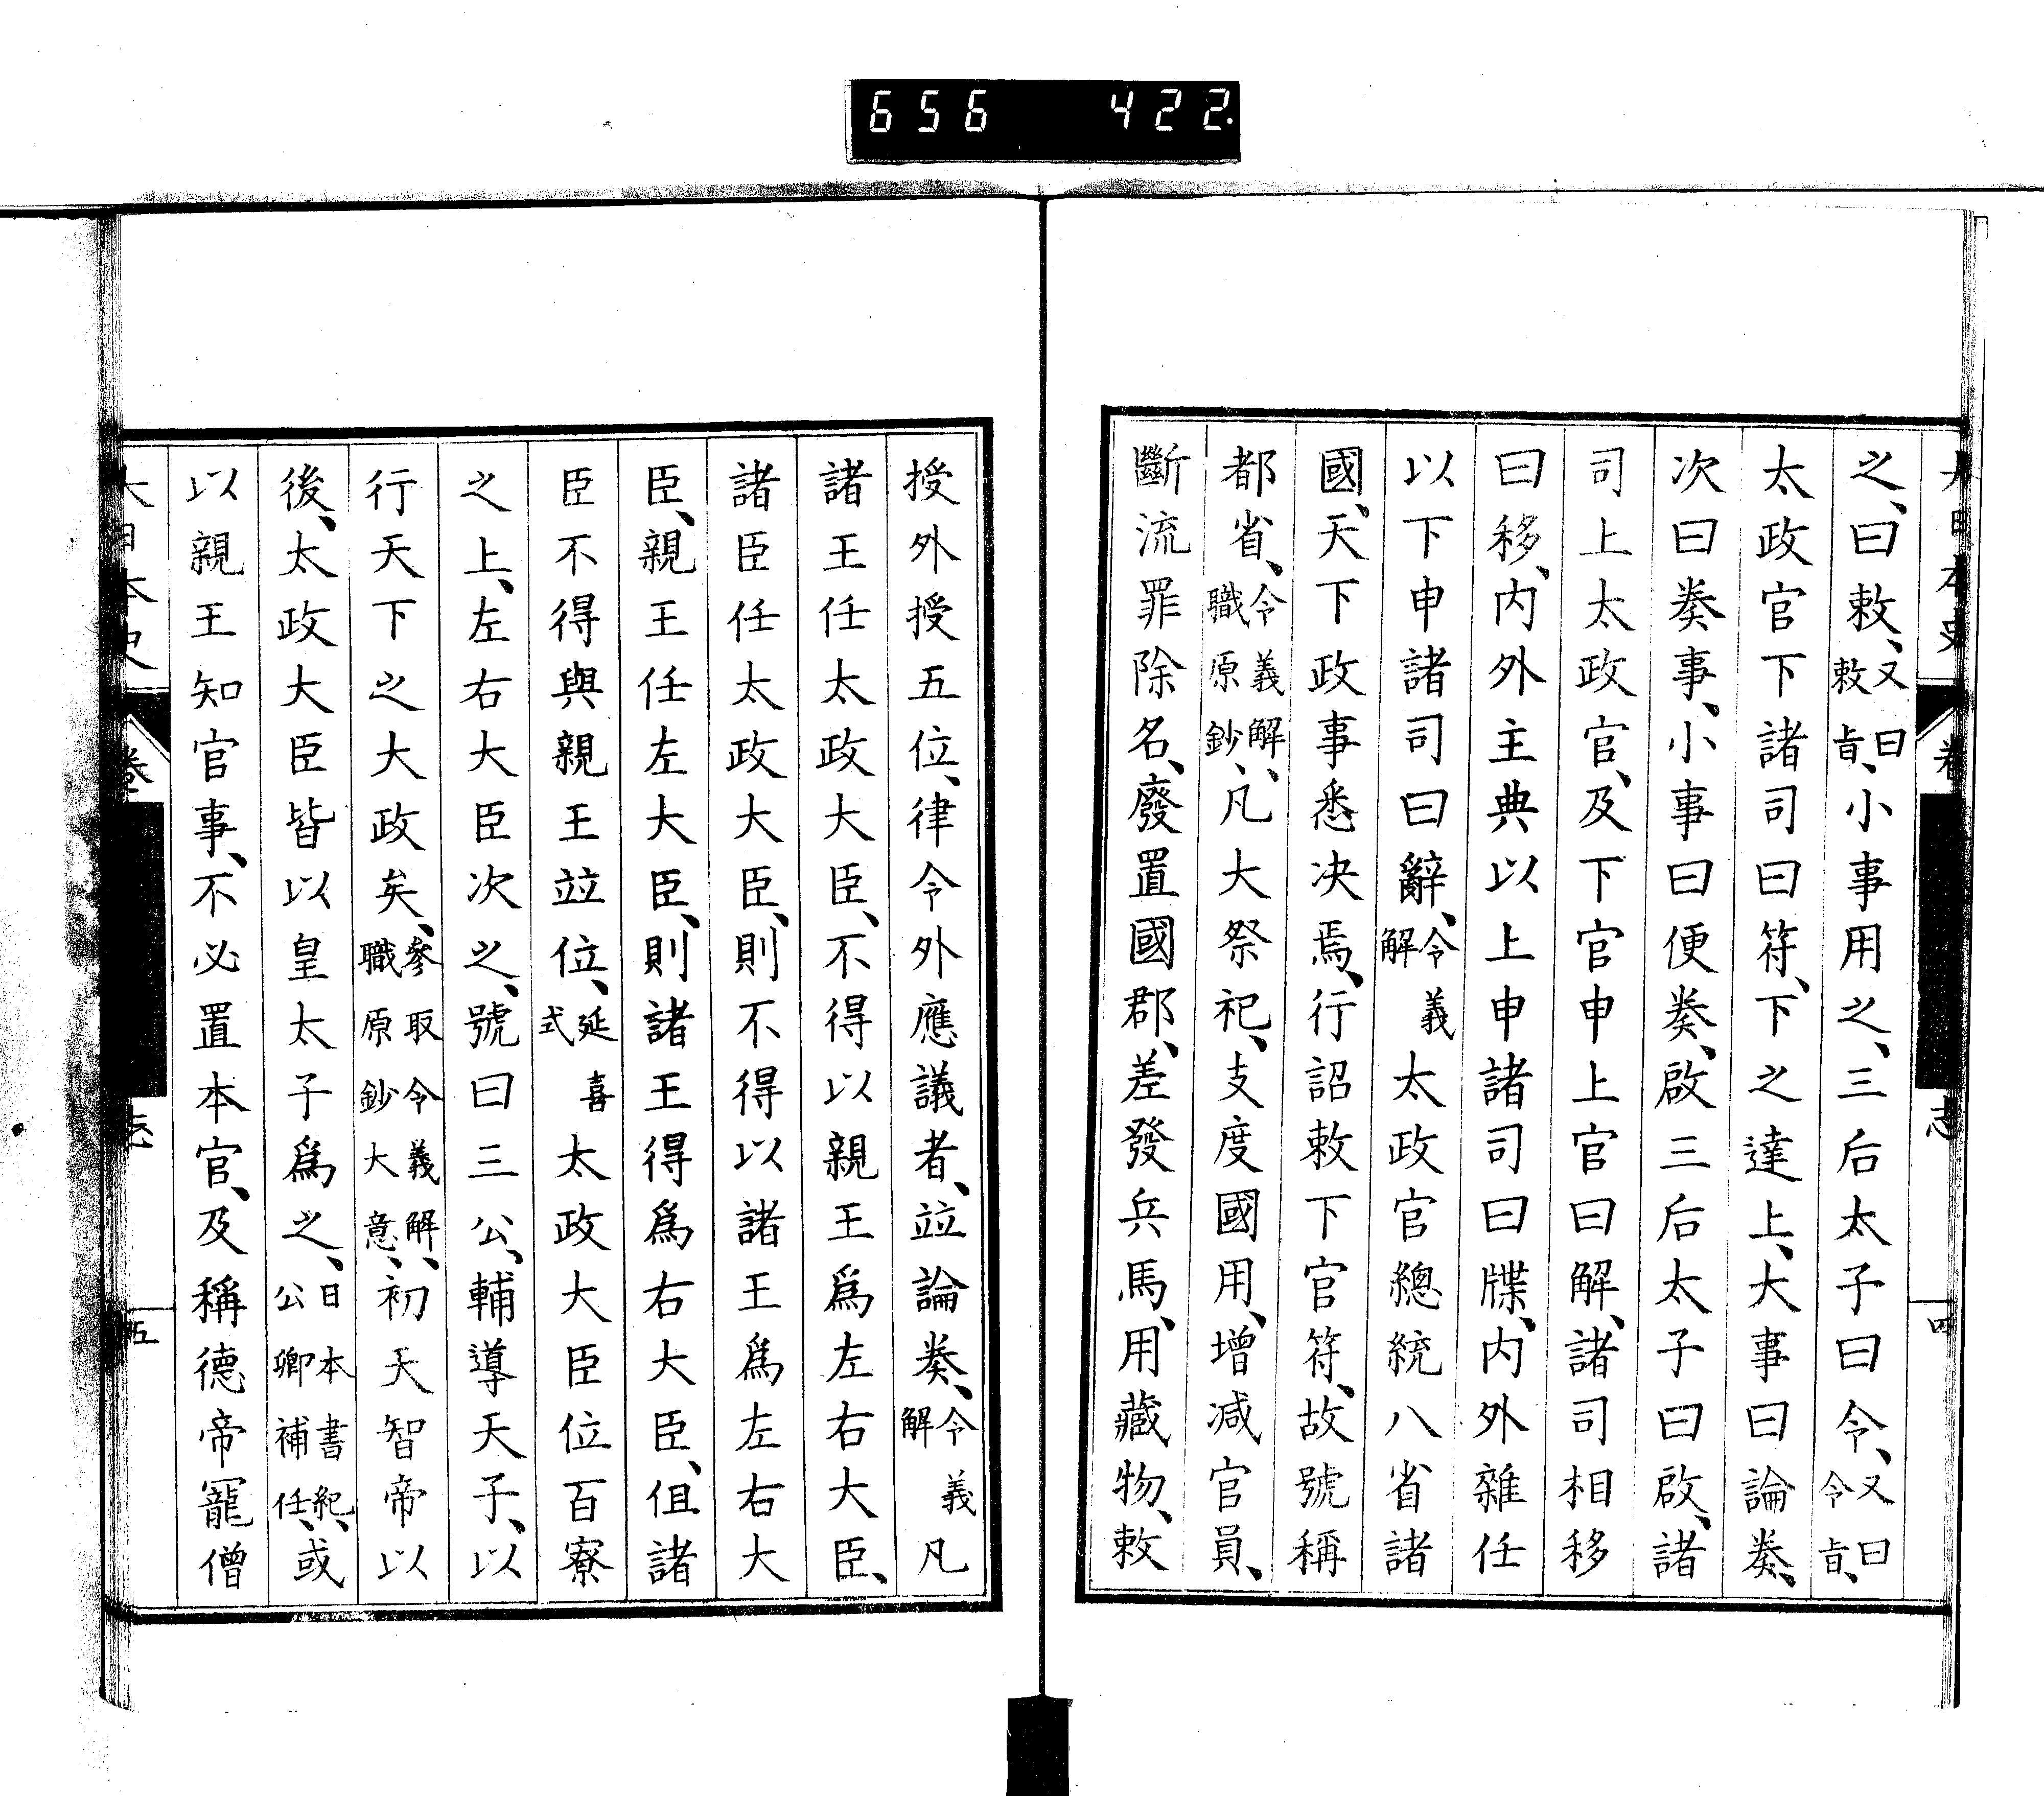 656 422.
大日本史 卷 志 四
之、曰敕、又曰敕旨、小事用之、三后太子曰令、又曰令旨、
太政官下諸司曰符、下之達上、大事曰論奏、
次曰奏事、小事曰便奏、啟三后太子曰啟、諸
司上太政官、及下官申上官曰解、諸司相移
曰移、内外主典以上申諸司曰牒、内外雜任
以下申諸司曰辭、令義解太政官總統八省諸
國、天下政事悉决焉、行詔敕下官符、故號稱
都省、令義解職原鈔、凡大祭祀、支度國用、增减官員、
斷流罪除名、廢置國郡、差發兵馬、用藏物、敕
授外授五位、律令外應議者、竝論奏、令義解凡
諸王任太政大臣、不得以親王爲左右大臣、
諸臣任太政大臣、則不得以諸王爲左右大
臣、親王任左大臣、則諸王得爲右大臣、但諸
臣不得與親王竝位、延喜式太政大臣位百寮
之上、左右大臣次之、號曰三公、輔導天子、以
行天下之大政矣、參取令義解、職原鈔大意、初天智帝以
後、太政大臣皆以皇太子爲之、日本書紀、公卿補任、或
以親王知官事、不必置本官、及稱德帝寵僧
大日本史 卷 志 五